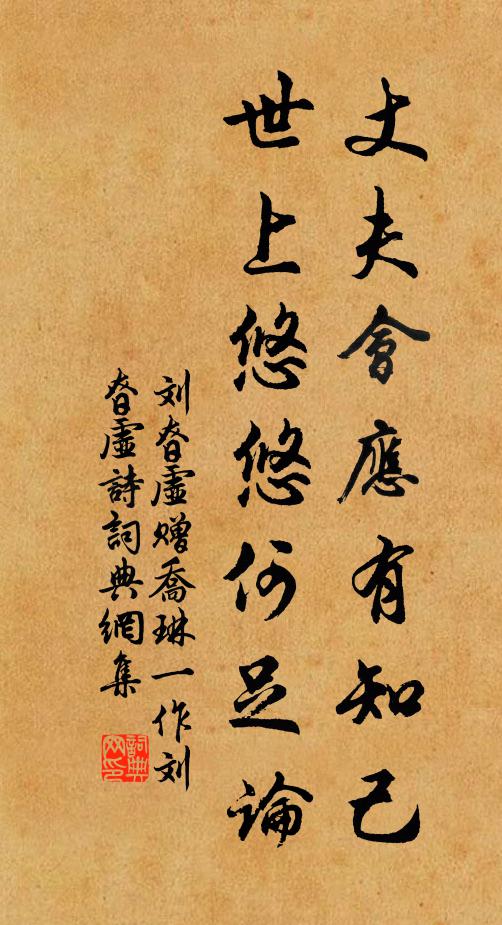 丈夫會應有知己
世上悠悠何足論
刘昚虛赠喬琳一作刘
昚虛詩詞典網集
詞典
网印